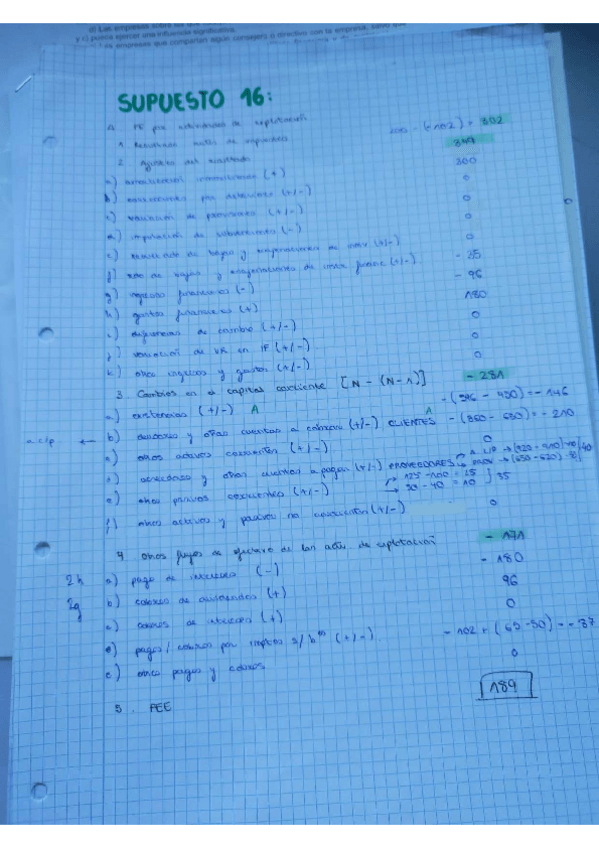 d) Las empresas sobre las que
y c) pueda ejercer una influencia significativa.
empresas que compartan algún consejero o directivo con la empresa, salvo que
SUPUESTO 16:
A. FE por actividades de explotación
1. Resultado antes de impuestos 200 - (-102) = 302
2. Ajustes del resultado 349
a) amortización inmovilizado (+) 300
b) correcciones por deterioro (+/-) 0
c) variación de provisiones (+/-) 0
d) imputación de subvenciones (-) 0
e) resultado de bajas y enajenaciones de inmov (+/-) 0
f) rdo de bajas y enajenaciones de instr financ (+/-) - 35
g) ingresos financieros (-) - 96
h) gastos financieros (+) 180
i) diferencias de cambio (+/-) 0
j) variación de VR en IF (+/-) 0
k) otros ingresos y gastos (+/-) 0
3. Cambios en el capital corriente [N - (N-1)] - 281
a) existencias (+/-) A - (596 - 450) = - 146
n c/p ← b) deudores y otras cuentas a cobrar (+/-) CLIENTES A - (860 - 630) = - 210
c) otros activos corrientes (+/-) 0
d) acreedores y otras cuentas a pagar (+/-) PROVEEDORES
e) otros pasivos corrientes (+/-) → 125 - 100 = 25 → 50 - 40 = 10 } 35
f) otros activos y pasivos no corrientes (+/-) 0
4. Otros flujos de efectivo de las act. de explotación - 171
2h a) pago de intereses (-) - 180
2g b) cobros de dividendos (+) 96
c) cobros de intereses (+) 0
d) pagos / cobros por imptos s/ bº (+/-) - 102 + (65 - 50) = - 87
e) otros pagos y cobros 0
5. FEE 189